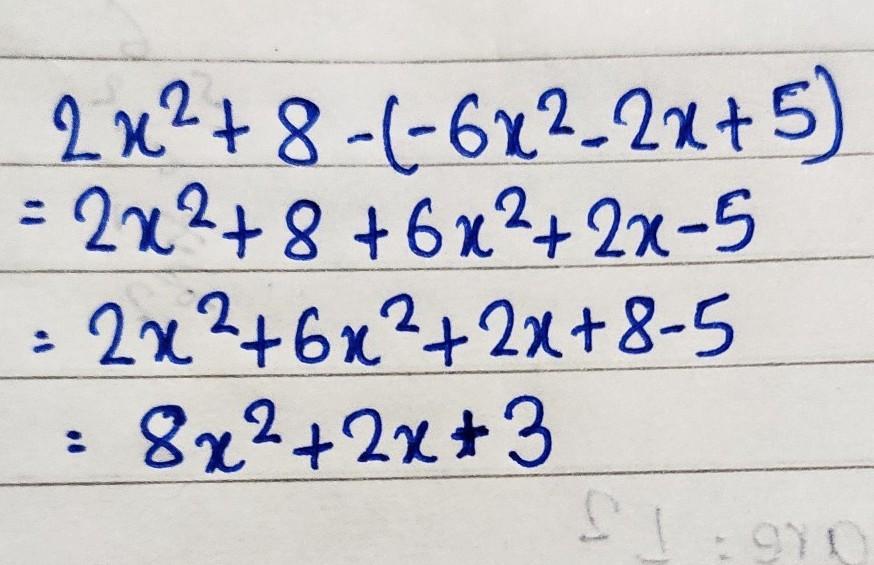 2x²+8-(-6x²-2x+5)
=2x²+8+6x²+2x-5
=2x²+6x²+2x+8-5
=8x²+2x+3